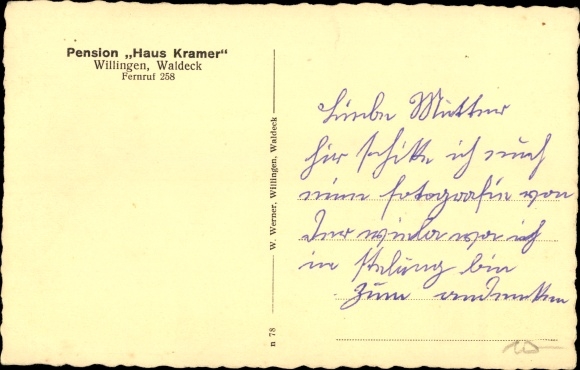 Pension „Haus Kramer“
Willingen, Waldeck
Fernruf 258
W. Werner, Willingen, Waldeck
n 78
Liebe Mutter
hir schike ich euch
eine fotografie von
der wo ich
in stelung bin
zum andenken
10